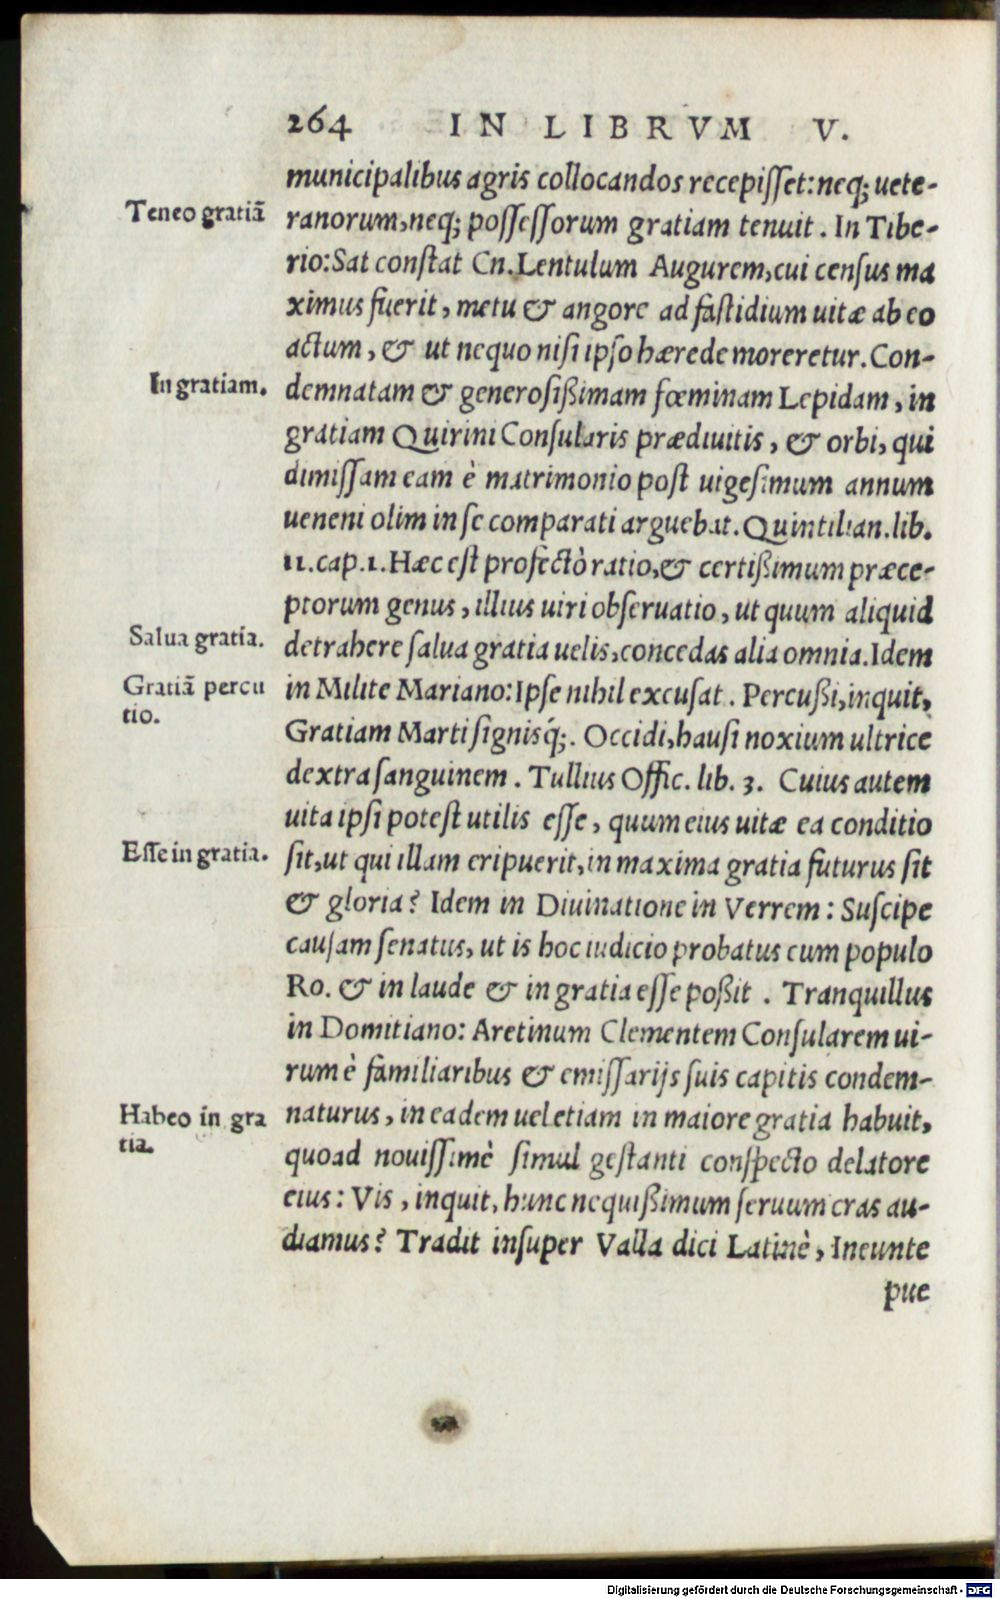 264 IN LIBRVM V.
municipalibus agris collocandos recepisset: neq; uete-
Teneo gratiã
ranorum, neq; possessorum gratiam tenuit. In Tibe-
rio: Sat constat Cn. Lentulum Augurem, cui census ma
ximus fuerit, metu & angore ad fastidium uitæ ab eo
actum, & ut nequo nisi ipso hærede moreretur. Con-
In gratiam.
demnatam & generosißimam fœminam Lepidam, in
gratiam Quirini Consularis prædiuitis, & orbi, qui
dimissam eam è matrimonio post uigesimum annum
ueneni olim in se comparati arguebat. Quintilian. lib.
11. cap. 1. Hæc est profectò ratio, & certißimum præce-
ptorum genus, illius uiri obseruatio, ut quum aliquid
Salua gratia.
detrahere salua gratia uelis, concedas alia omnia. Idem
Gratiã percu
tio.
in Milite Mariano: Ipse nihil excusat. Percußi, inquit,
Gratiam Marti signisq́;. Occidi, hausi noxium ultrice
dextra sanguinem. Tullius Offic. lib. 3. Cuius autem
uita ipsi potest utilis esse, quum eius uitæ ea conditio
Esse in gratia.
sit, ut qui illam eripuerit, in maxima gratia futurus sit
& gloria? Idem in Diuinatione in Verrem: Suscipe
causam senatus, ut is hoc iudicio probatus cum populo
Ro. & in laude & in gratia esse poßit. Tranquillus
in Domitiano: Aretinum Clementem Consularem ui-
rum è familiaribus & emissarijs suis capitis condem-
Habeo in gra
tia.
naturus, in eadem uel etiam in maiore gratia habuit,
quoad nouissimè simul gestanti conspecto delatore
eius: Vis, inquit, hunc nequißimum seruum cras au-
diamus? Tradit insuper Valla dici Latinè, Ineunte
pue
Digitalisierung gefördert durch die Deutsche Forschungsgemeinschaft - DFG